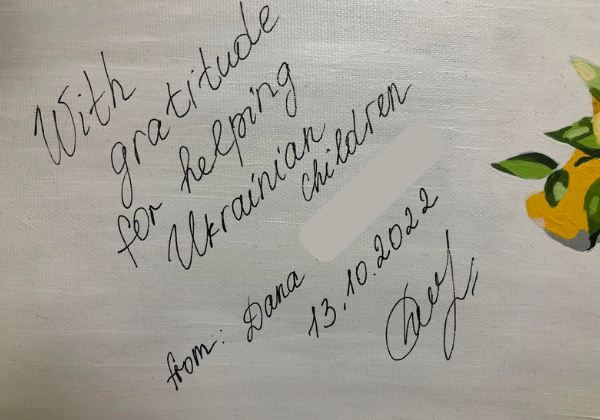 With
gratitude
for helping
Ukrainian
children
from: Dana
13.10.2022